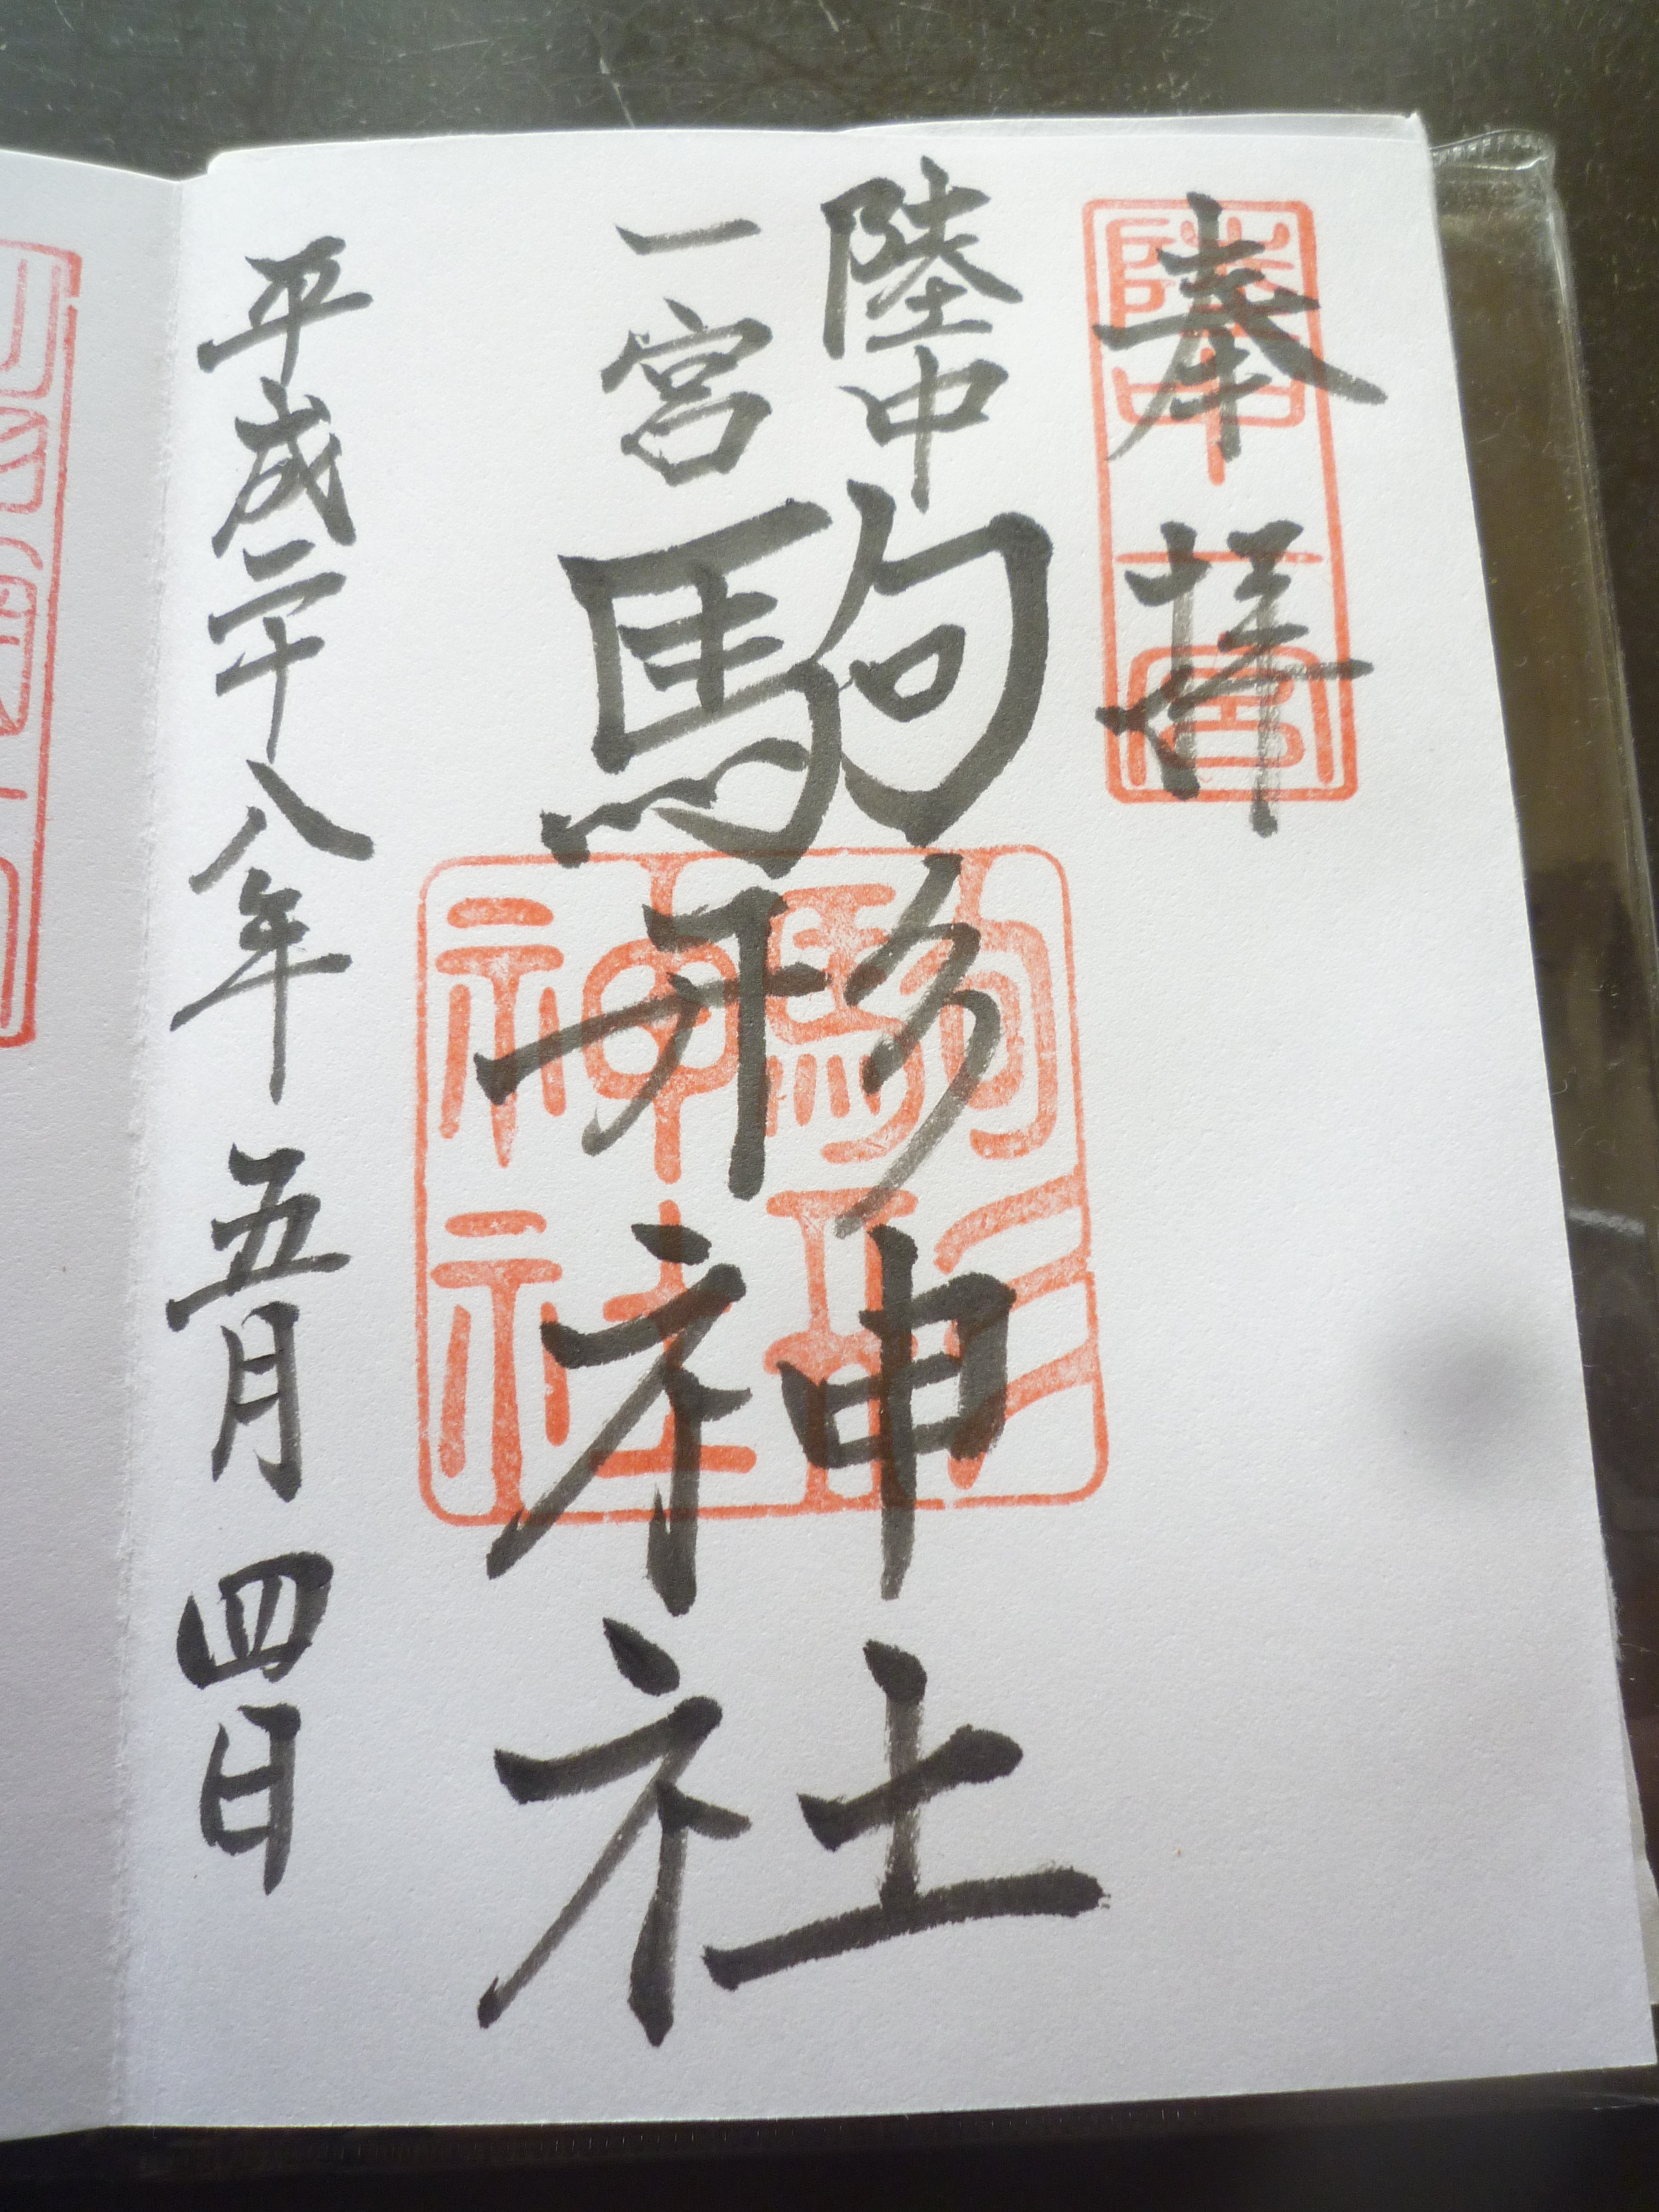 奉拝
陸中一宮
陸中
一宮
駒形神社
駒形
神社
平成二十八年 五月 四日